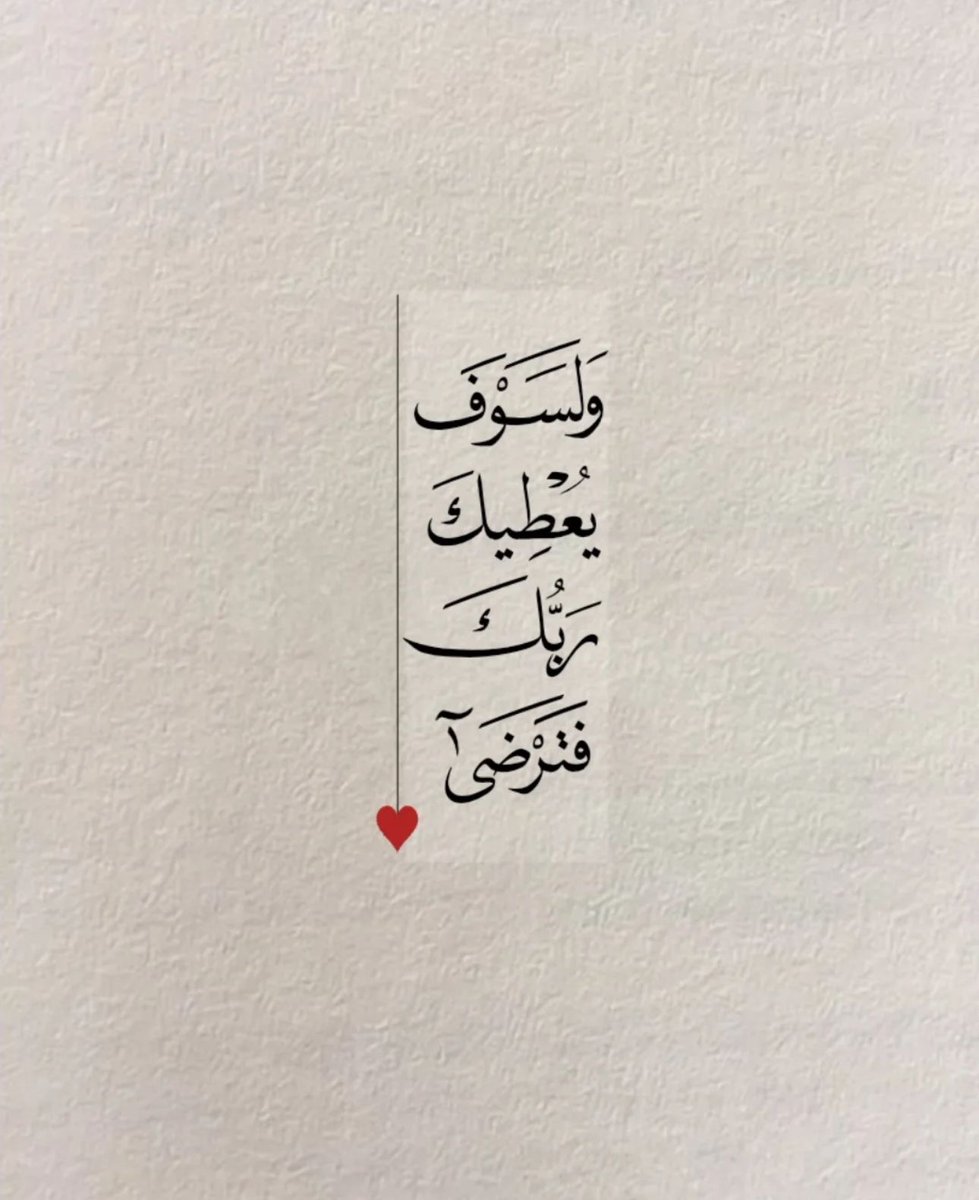 وَلَسَوْفَ
يُعْطِيكَ
رَبُّكَ
فَتَرْضَىٓ